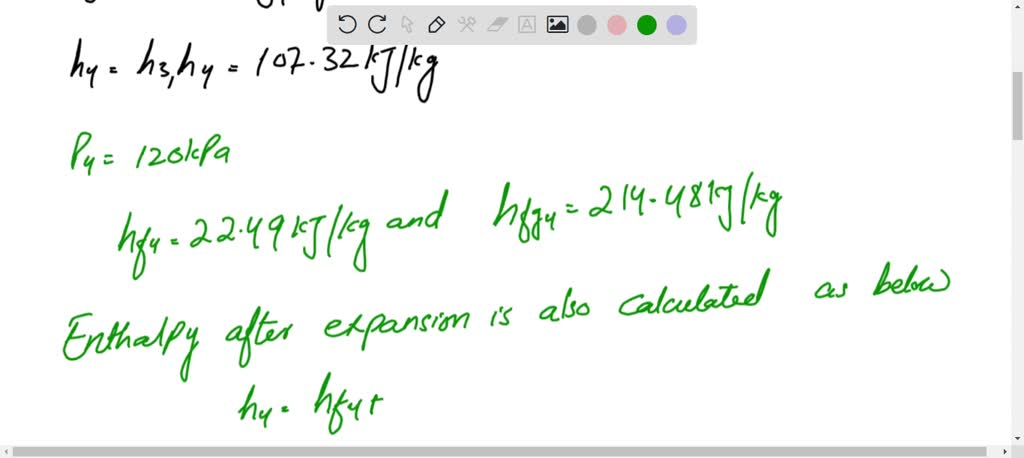 h4 = h3, h4 = 107.32 kJ/kg
P4 = 120kPa
hf4 = 22.49 kJ/kg and hfg4 = 214.48 kJ/kg
Enthalpy after expansion is also calculated as below
h4 = hf4 +